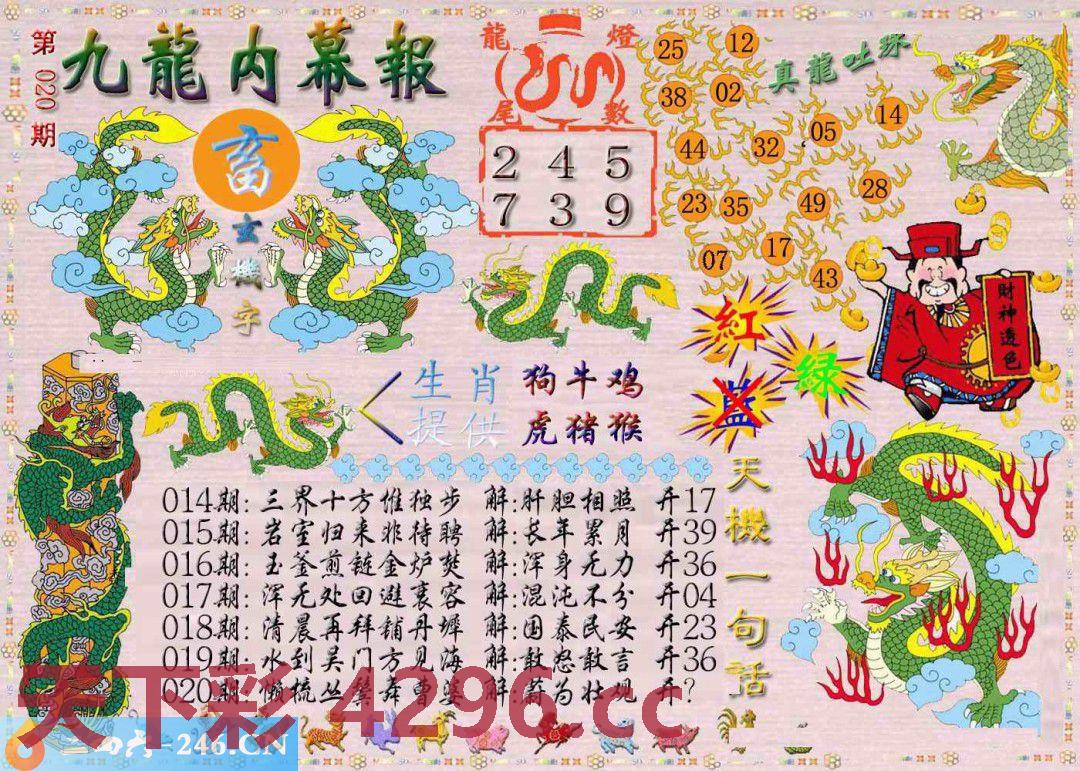 第020期
九龍内幕報
龍燈
尾數
2 4 5
7 3 9
真龍吐珠
25 12
38 02
14
05
44 32
28
23 35 49
17
07
43
畜
玄機字
財神透色
紅
绿
蓝
生肖 狗牛鸡
提供 虎猪猴
天機一句话
014期: 三界十方惟独步 解:肝胆相照 开17
015期: 岩室归来非待聘 解:长年累月 开39
016期: 玉釜煎鏈金炉焚 解:浑身无力 开36
017期: 浑无处回避衰容 解:混沌不分 开04
018期: 清晨再拜铺丹墀 解:国泰民安 开23
019期: 水到吴门方见海 解:敢怒敢言 开36
020期: 懒梳丛鬓舞曹婆 解:蔚为壮观 开?
天下彩 4296.cc
246.CN